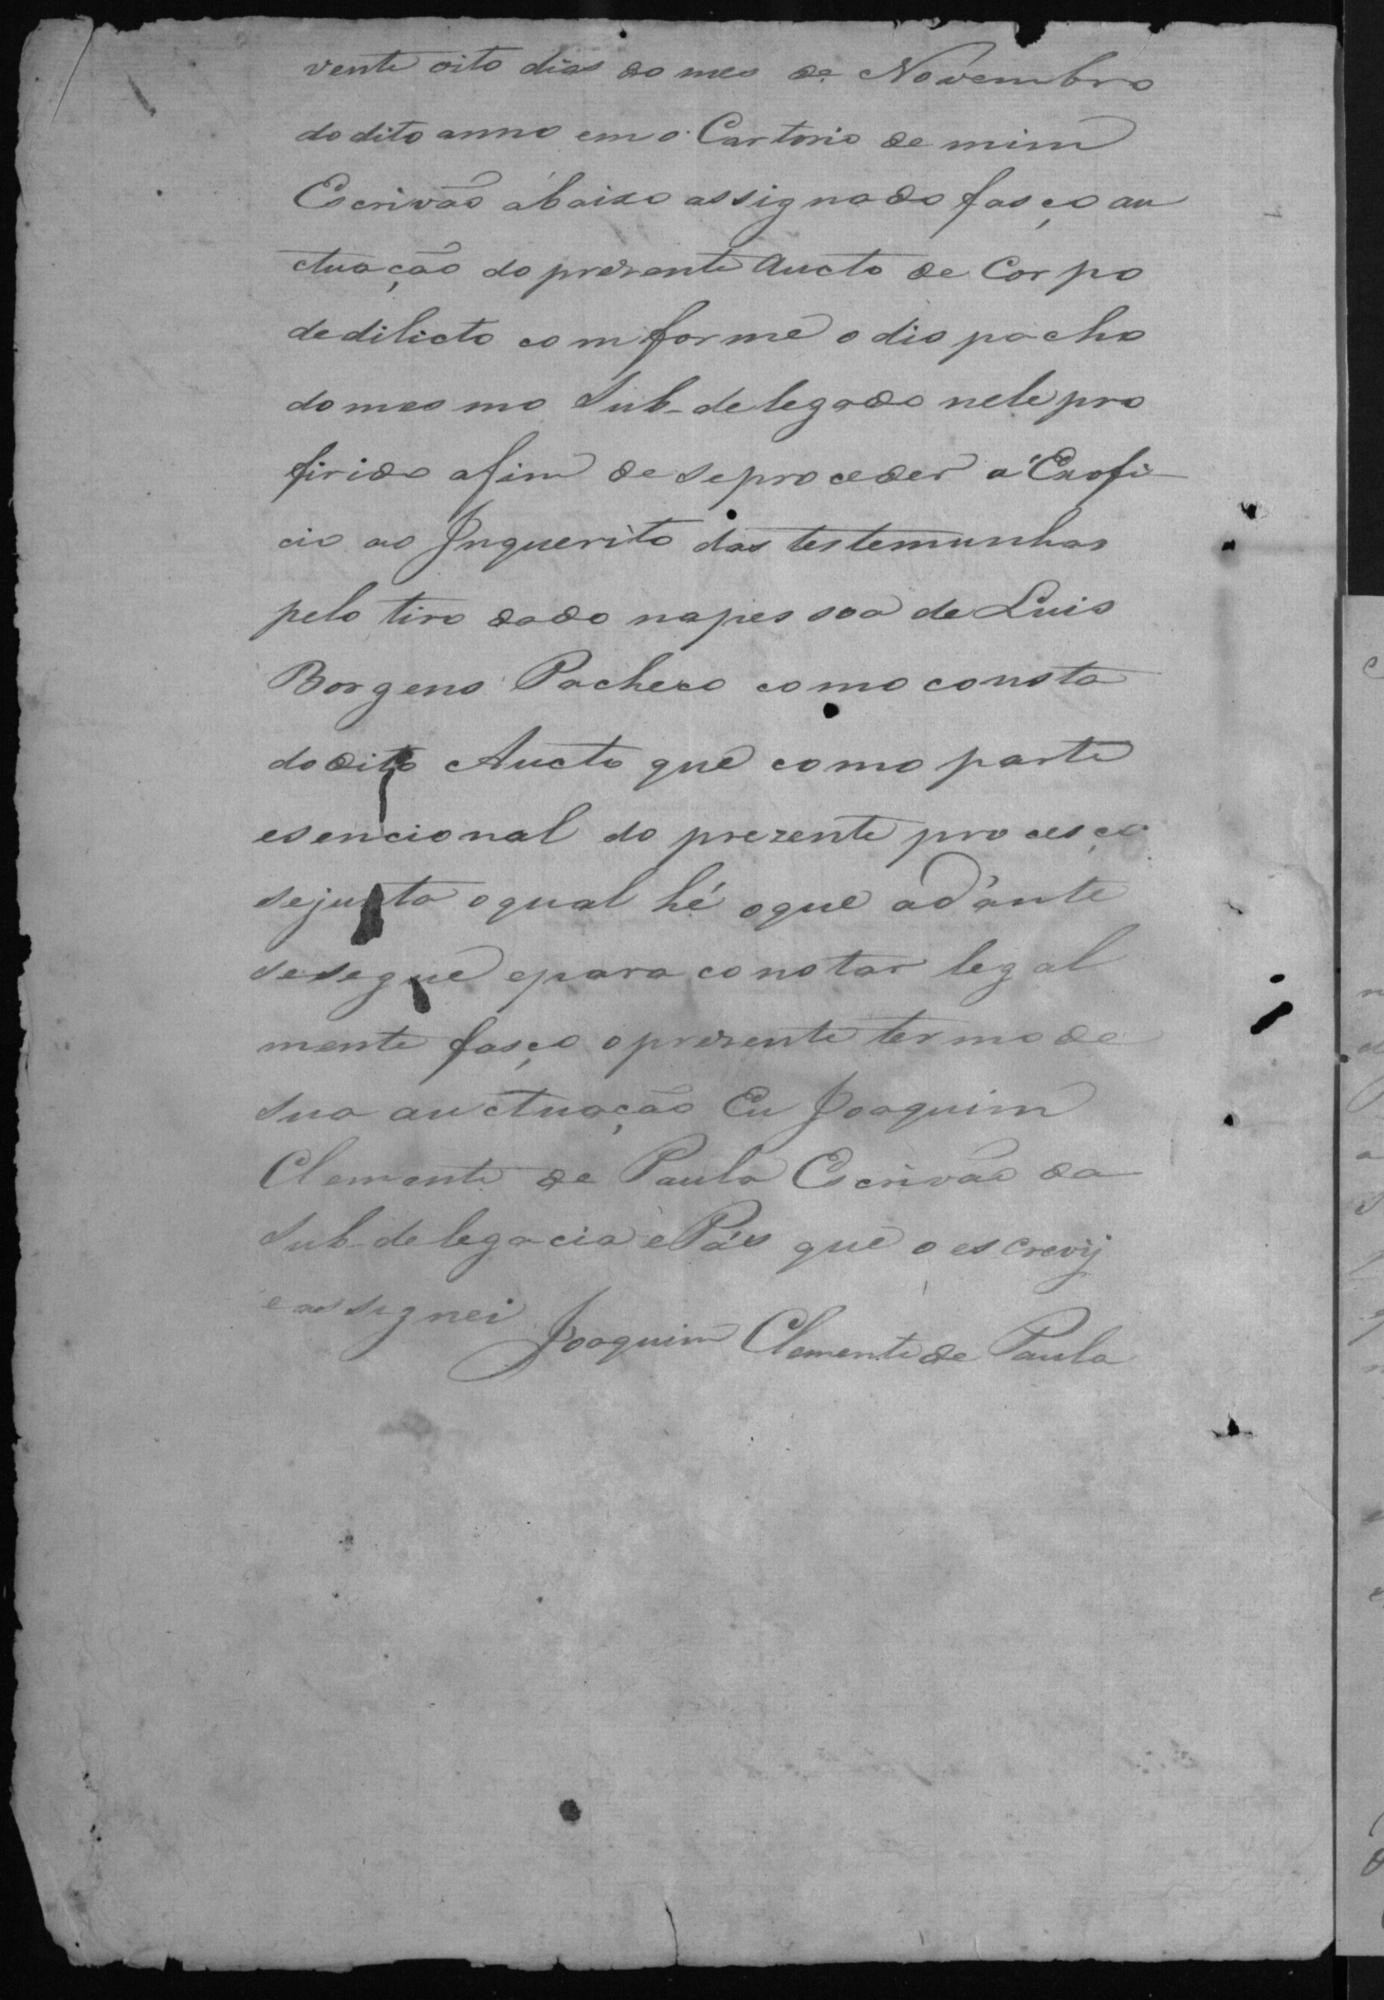 vente oito dias do mes de Novembro
do dito anno em o Cartorio de mim
Escrivão abaixo assignado fasço au
ctuação do prezente Aucto de Corpo
de dilicto comforme o dispacho
do mesmo Sub-delegado nele pro
firido afim de se proceder a Exofi-
cio ao Inquerito das testemunhas
pelo tiro dado na pessoa de Luis
Borgens Pacheco como consta
do dito Aucto que como parte
esencional do prezente procesço
se junta o qual hé o que adiante
se segue e para constar legal
mente fasço o prezente termo de
sua auctuação Eu Joaquim
Clemente de Paula Escrivão da
Sub-delegacia e Pás que o escrevij
e assignei
Joaquim Clemente de Paula